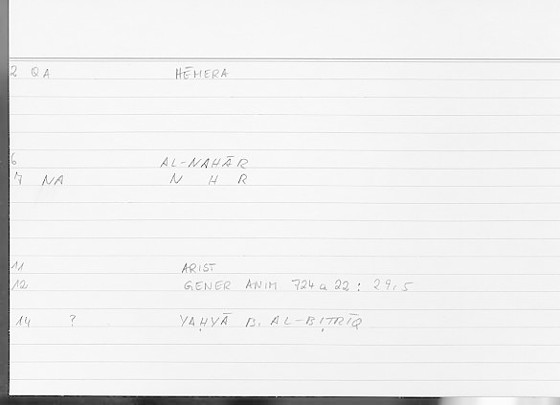 2 QA HĒMERA
6 AL-NAHĀR
7 NA N H R
11 ARIST
12 GENER ANIM 724 a 22 : 29,5
14 ? YAḤYĀ B. AL-BIṬRĪQ